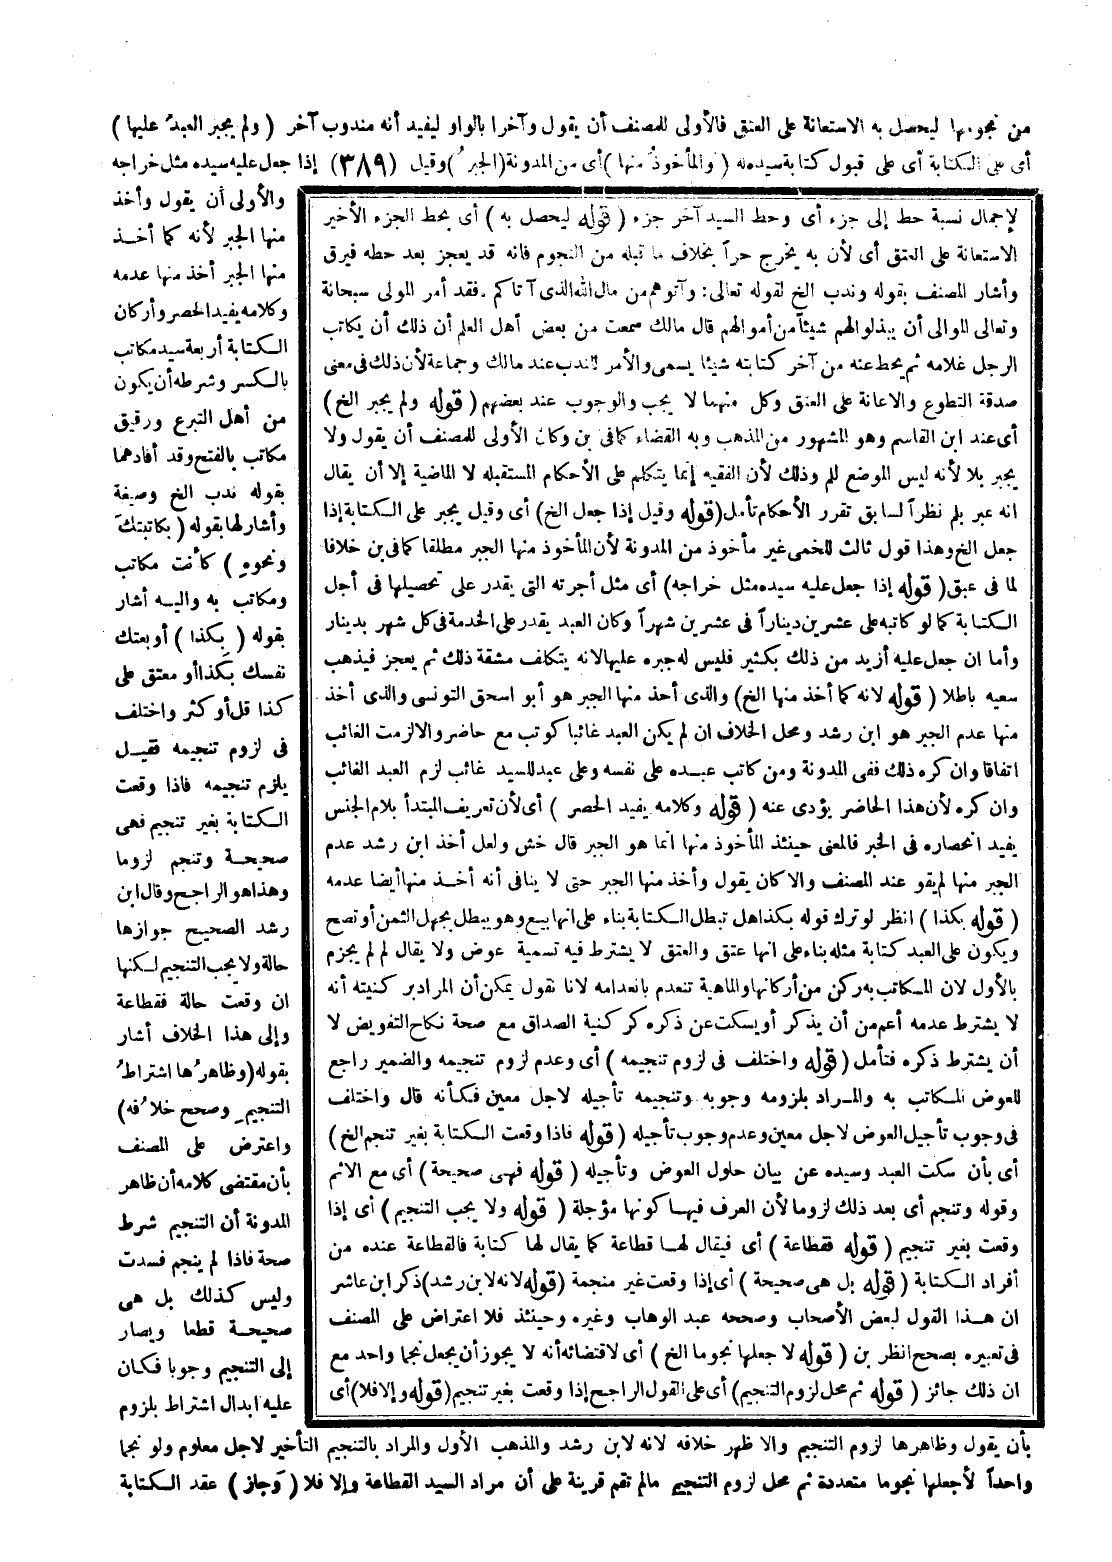 من نجومها ليحصل به الاستعانة على العتق فالأولى للمصنف أن يقول وآخرا بالواو ليفيد أنه مندوب آخر ( ولم يجبر العبدُ عليها )
أى على الكتابة أى على قبول كتابة سيده له ( والمأخوذُ منها ) أى من المدونة (الجبرُ ) وقيل (٣٨٩) إذا جعل عليه سيده مثل خراجه
والأولى أن يقول وأخذ
منها الجبر لأنه كما أخـذ
منها الجبر أخذ منها عدمه
وكلامه يفيد الحصر وأركان
الكتابة أربعة سيد مكاتب
بالكسر وشرطه أن يكون
من أهل التبرع ورقيق
مكاتب بالفتح وقد أفادهما
بقوله ندب الخ وصيغة
وأشار لها بقوله ( بكاتبتكَ
ونحوهِ ) كأنت مكاتب
ومكاتب به واليـه أشار
بقوله ( بكذا ) أو بعتك
نفسك بكذا أو معتق على
كذا قل أو كثر واختلف
فى لزوم تنجيمه فقيـل
يلزم تنجيمه فاذا وقعت
الكتابة بغير تنجيم فهى
صحيحة وتنجم لزوما
وهذا هو الراجح وقال ابن
رشد الصحيح جوازها
حالة ولا يجب التنجيم لكنها
ان وقعت حالة فقطاعة
وإلى هذا الخلاف أشار
بقوله (وظاهرُها اشتراطُ
التنجيمِ وصحح خلافُه)
واعترض على المصنف
بأن مقتضى كلامه أن ظاهر
المدونة أن التنجيم شرط
صحة فاذا لم ينجم فسدت
وليس كذلك بل هى
صحيحة قطعا ويصار
إلى التنجيم وجوبا فكان
عليه ابدال اشتراط بلزوم
لإجمال نسبة حط إلى جزء أى وحط السيد آخر جزء ( قوله ليحصل به ) أى بحط الجزء الأخير
الاستعانة على العتق أى لأن به يخرج حراً بخلاف ما قبله من النجوم فانه قد يعجز بعد حطه فيرق
وأشار المصنف بقوله وندب الخ لقوله تعالى: وآتوهم من مال الله الذى آتاكم . فقد أمر المولى سبحانة
وتعالى الموالى أن يبذلوا لهم شيئاً من أموالهم قال مالك سمعت من بعض أهل العلم أن ذلك أن يكاتب
الرجل غلامه ثم يحط عنه من آخر كتابته شيئا يسمى والأمر للندب عند مالك وجماعة لأن ذلك فى معنى
صدقة التطوع والاعانة على العتق وكل منهما لا يجب وللوجوب عند بعضهم ( قوله ولم يجبر الخ )
أى عند ابن القاسم وهو المشهور من المذهب وبه القضاء كما فى بن وكان الأولى للمصنف أن يقول ولا
يجبر بلا لأنه ليس الموضع للم وذلك لأن الفقيه إنما يتكلم على الأحكام المستقبله لا الماضية إلا أن يقال
انه عبر بلم نظراً لسابق تقرر الأحكام تأمل (قوله وقيل إذا جعل الخ) أى وقيل يجبر على الكتابة إذا
جعل الخ وهذا قول ثالث للخمى غير مأخوذ من المدونة لأن المأخوذ منها الجبر مطلقا كما فى بن خلافا
لما فى عبق ( قوله إذا جعل عليه سيده مثل خراجه) أى مثل أجرته التى يقدر على تحصيلها فى أجل
الكتابة كما لو كاتبه على عشرين ديناراً فى عشرين شهراً وكان العبد يقدر على الخدمة فى كل شهر بدينار
وأما ان جعل عليه أزيد من ذلك بكثير فليس له جبره عليها لانه يتكلف مشقة ذلك ثم يعجز فيذهب
سعيه باطلا ( قوله لانه كما أخذ منها الخ) والذى أخذ منها الجبر هو أبو اسحق التونسى والذى أخذ
منها عدم الجبر هو ابن رشد ومحل الخلاف ان لم يكن العبد غائبا كوتب مع حاضر والا لزمت الغائب
اتفاقا وان كره ذلك ففى المدونة ومن كاتب عبـده على نفسه وعلى عبد للسيد غائب لزم العبد الغائب
وان كره لأن هذا الحاضر يؤدى عنه ( قوله وكلامه يفيد الحصر ) أى لأن تعريف المبتدأ بلام الجنس
يفيد انحصاره فى الخبر فالمعنى حينئذ المأخوذ منها انما هو الجبر قال خش ولعل أخذ ابن رشد عدم
الجبر منها لم يقو عند المصنف والا كان يقول وأخذ منها الجبر حتى لا ينافى أنه أخـذ منها أيضا عدمه
( قوله بكذا ) انظر لو ترك قوله بكذا هل تبطل الكتابة بناء على انها بيع وهو يبطل بجهل الثمن أو تصح
ويكون على العبد كتابة مثله بناء على انها عتق والعتق لا يشترط فيه تسمية عوض ولا يقال لم لم يجزم
بالأول لان المكاتب به ركن من أركانها والماهية تنعدم بانعدامه لانا نقول يمكن أن المراد بركنيته أنه
لا يشترط عدمه أعم من أن يذكر أو يسكت عن ذكره كركنية الصداق مع صحة نكاح التفويض لا
أن يشترط ذكره فتأمل ( قوله واختلف فى لزوم تنجيمه ) أى وعدم لزوم تنجيمه والضمير راجع
للعوض المكاتب به والمـراد بلزومه وجوبه وتنجيمه تأجيله لاجل معين فكأنه قال واختلف
فى وجوب تأجيل العوض لاجل معين وعدم وجوب تأجيله ( قوله فاذا وقعت الكتابة بغير تنجم الخ )
أى بأن سكت العبد وسيده عن بيان حلول العوض وتأجيله ( قوله فهى صحيحة ) أى مع الاثم
وقوله وتنجم أى بعد ذلك لزوما لأن العرف فيهـا كونها مؤجلة ( قوله ولا يجب التنجيم ) أى إذا
وقعت بغير تنجيم ( قوله فقطاعة ) أى فيقال لهـا قطاعة كما يقال لها كتابة فالقطاعة عنده من
أفراد الكتابة ( قوله بل هى صحيحة ) أى إذا وقعت غير منجمة (قوله لانه لابن رشد) ذكر ابن عاشر
ان هـذا القول لبعض الأصحاب وصححه عبد الوهاب وغيره وحينئذ فلا اعتراض على المصنف
فى تعبيره بصحح انظر بن ( قوله لا جعلها نجوما الخ ) أى لاقتضائه أنه لا يجوز أن يجعل نجما واحد مع
ان ذلك جائز ( قوله ثم محل لزوم التنجيم ) أى على القول الراجح إذا وقعت بغير تنجيم (قوله وإلا فلا) أى
بأن يقول وظاهرها لزوم التنجيم والا ظهر خلافه لانه لابن رشد والمذهب الأول والمراد بالتنجيم التأخير لاجل معلوم ولو نجما
واحداً لأجعلها نجوما متعددة ثم محل لزوم التنجيم مالم تقم قرينة على أن مراد السيد القطاعة وإلا فلا ( وَجاز ) عقد الكتابة